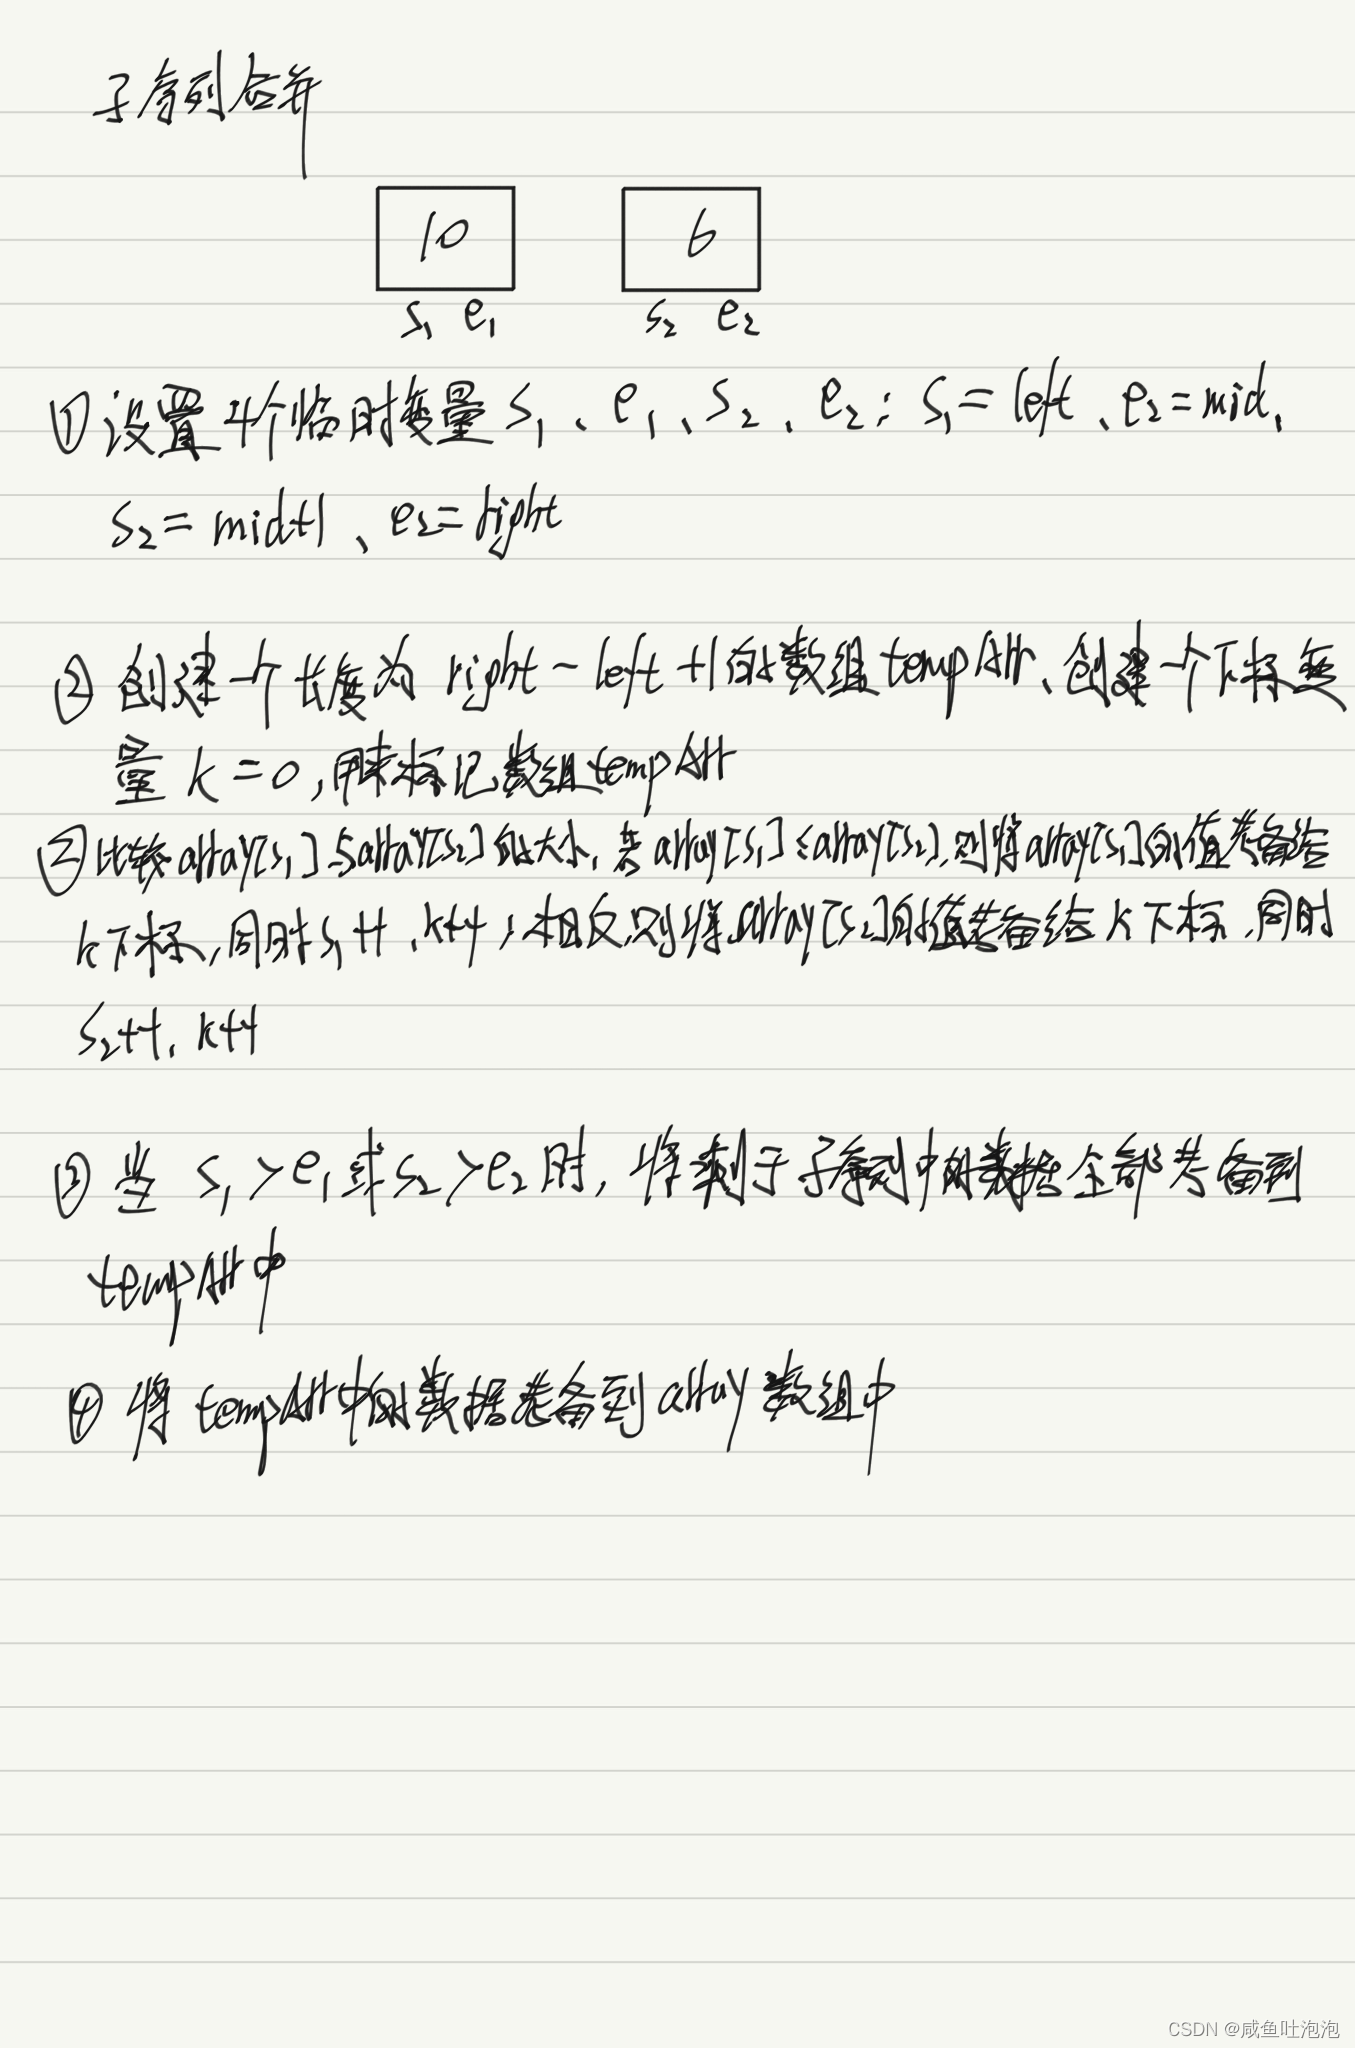 子序列合并
10 6
s₁ e₁ s₂ e₂
①设置4个临时变量s₁、e₁、s₂、e₂: s₁=left、e₂=mid、
s₂=mid+1、e₂=right
② 创建一个长度为 right-left+1的数组tempArr、创建一个下标变
量 k=0,用来标记数组tempArr
②比较array[s₁]与array[s₂]的大小,若array[s₁]≤array[s₂],则将array[s₁]的值准备给
k下标,同时s₁++、k++;相反,则将array[s₂]的值准备给k下标,同时
s₂++、k++
③ 当 s₁>e₁或s₂>e₂时,将剩于子序列中的数据全部准备到
tempArr中
④ 将tempArr中的数据准备到array数组中
CSDN @咸鱼吐泡泡